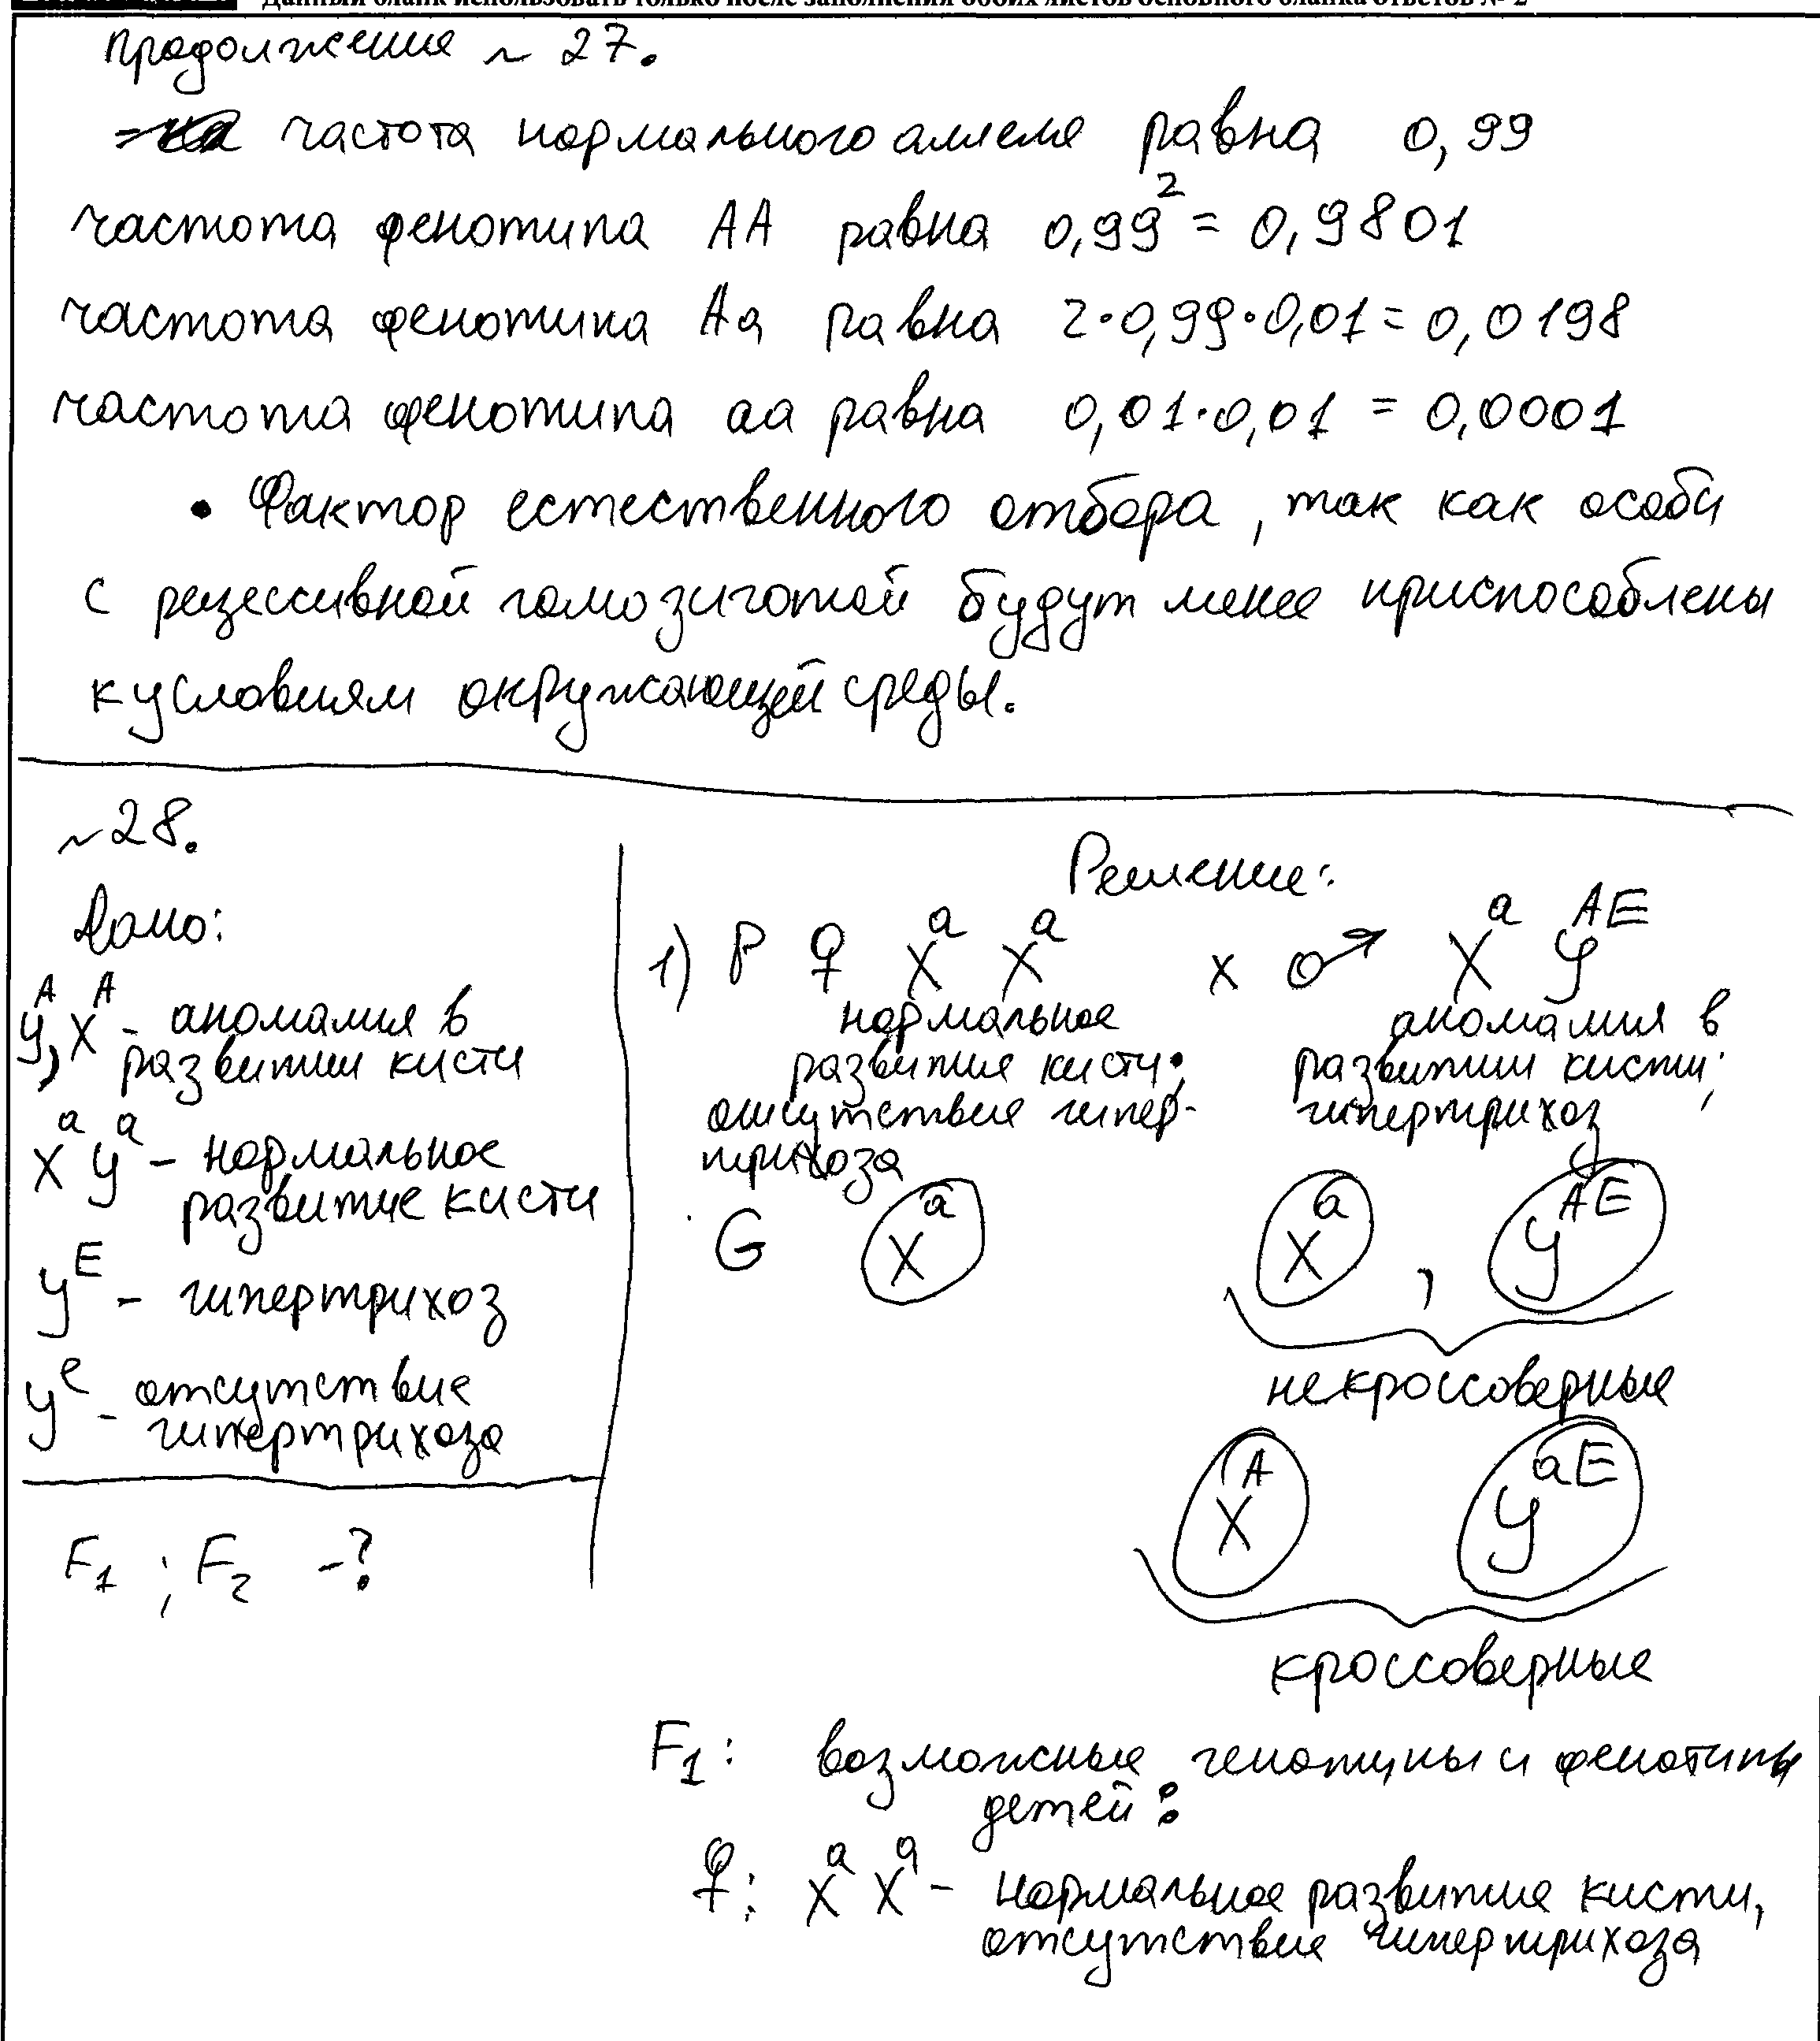 Данный бланк использовать только после заполнения обоих листов основного бланка ответов № 2
Продолжение ~ 27.
частота нормального аллеля равна 0,99
частота фенотипа AA равна 0,99² = 0,9801
частота фенотипа Aa равна 2·0,99·0,01 = 0,0198
частота фенотипа aa равна 0,01·0,01 = 0,0001
• Фактор естественного отбора, так как особи
с рецессивной гомозиготой будут менее приспособлены
к условиям окружающей среды.
~28.
Дано:
Yᴬ, Xᴬ - аномалия в
развитии кисти
Xᵃ Yᵃ - нормальное
развитие кисти
Yᴱ - гипертрихоз
Yᵉ - отсутствие
гипертрихоза
F₁ ; F₂ - ?
Решение:
1) P ♀ Xᵃ Xᵃ x ♂ Xᵃ Yᴬᴱ
нормальное
развитие кисти;
отсутствие гипер-
трихоза
аномалия в
развитии кисти;
гипертрихоз
G Xᵃ Xᵃ , Yᴬᴱ
некроссоверные
Xᴬ Yᵃᴱ
кроссоверные
F₁: возможные генотипы и фенотипы
детей:
♀: Xᵃ Xᵃ - нормальное развитие кисти,
отсутствие гипертрихоза